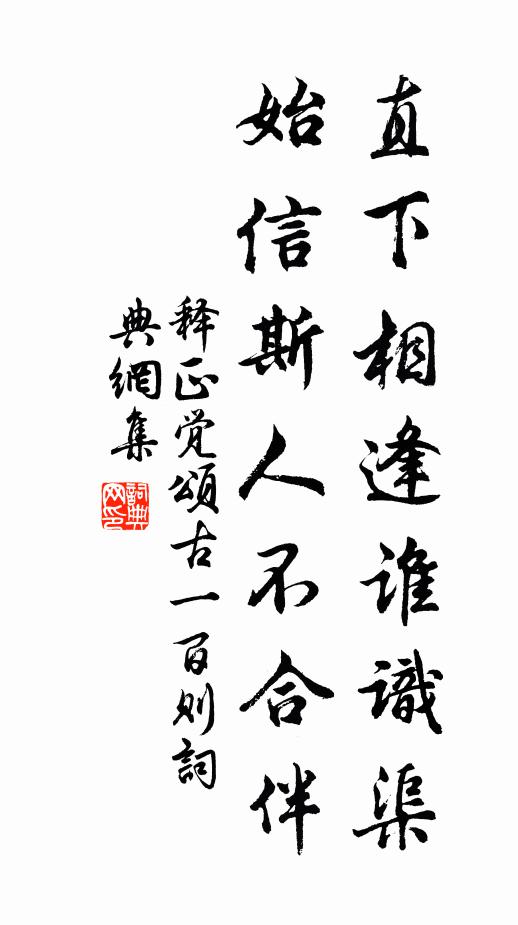 直下相逢誰識渠
始信斯人不合伴
释正觉頌古一百则詞
典網集
詞典网印